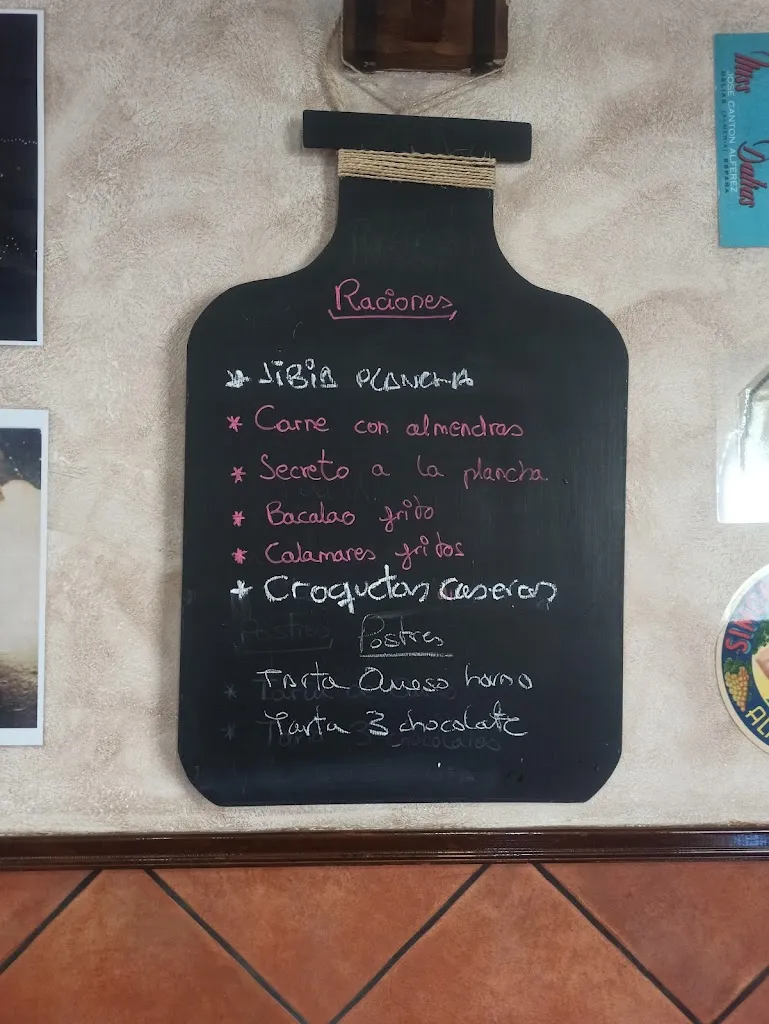 Raciones
* JIBIA PLANCHA
* Carne con almendras
* Secreto a la plancha
* Bacalao frito
* Calamares fritos
* Croquetas caseras
Postres
Tarta Queso horno
Tarta 3 chocolate
Miss Dalias
JOSE CANTON ALFEREZ
DALIAS (ALMERIA) ESPAÑA